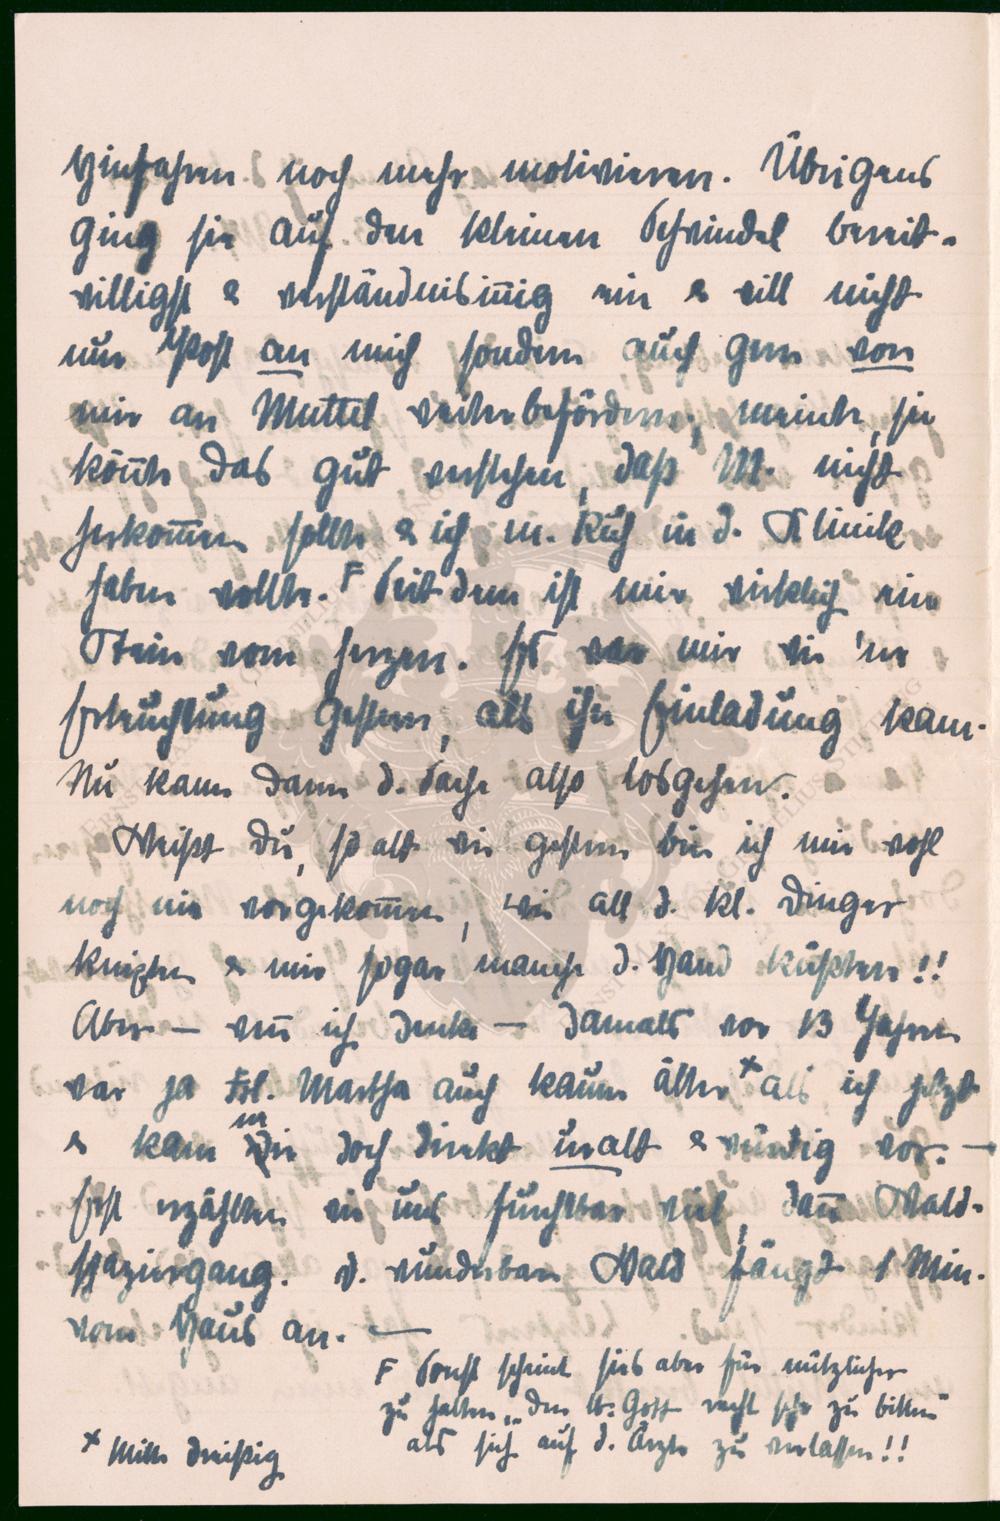 Hinfahren noch mehr motivieren. Übrigens
ging sie auf den kleinen Schwindel bereit-
willigst & verständnisinnig ein & will nicht
nur Post an mich sondern auch gern von
mir an Muttel weiterbefördern, meinte, sie
könnte das gut verstehen, daß M. nicht
herkom̄en sollte & ich m. Ruh in d. Klinik
haben wollte. F Seitdem ist mir wirklich ein
Stein vom Herzen. Es war mir wie 'ne
Erleuchtung gestern, als ihre Einladung kam.
Nu kann dann d. Sache also losgehen.
Weißt Du, so alt wie gestern bin ich mir wohl
noch nie vorgekom̄en, wie all d. kl. Dinger
knixten & mir sogar manche d. Hand küßten!!
Aber – wen̄ ich denke – damals vor 13 Jahren
war ja Frl. Martha auch kaum älter x als ich jetzt
& kam mir doch direkt uralt & würdig vor. –
Erst erzählten wir uns furchtbar viel, dan̄ Wald-
spaziergang. D. wunderbare Wald fängt 1 Min.
vom Haus an. –
F Sonst scheint sies aber für nützlicher
zu halten „den lb. Gott recht sehr zu bitten"
als sich auf d. Ärzte zu verlassen!!
x Mitte dreißig
ERNST MAX
STIFTUNG